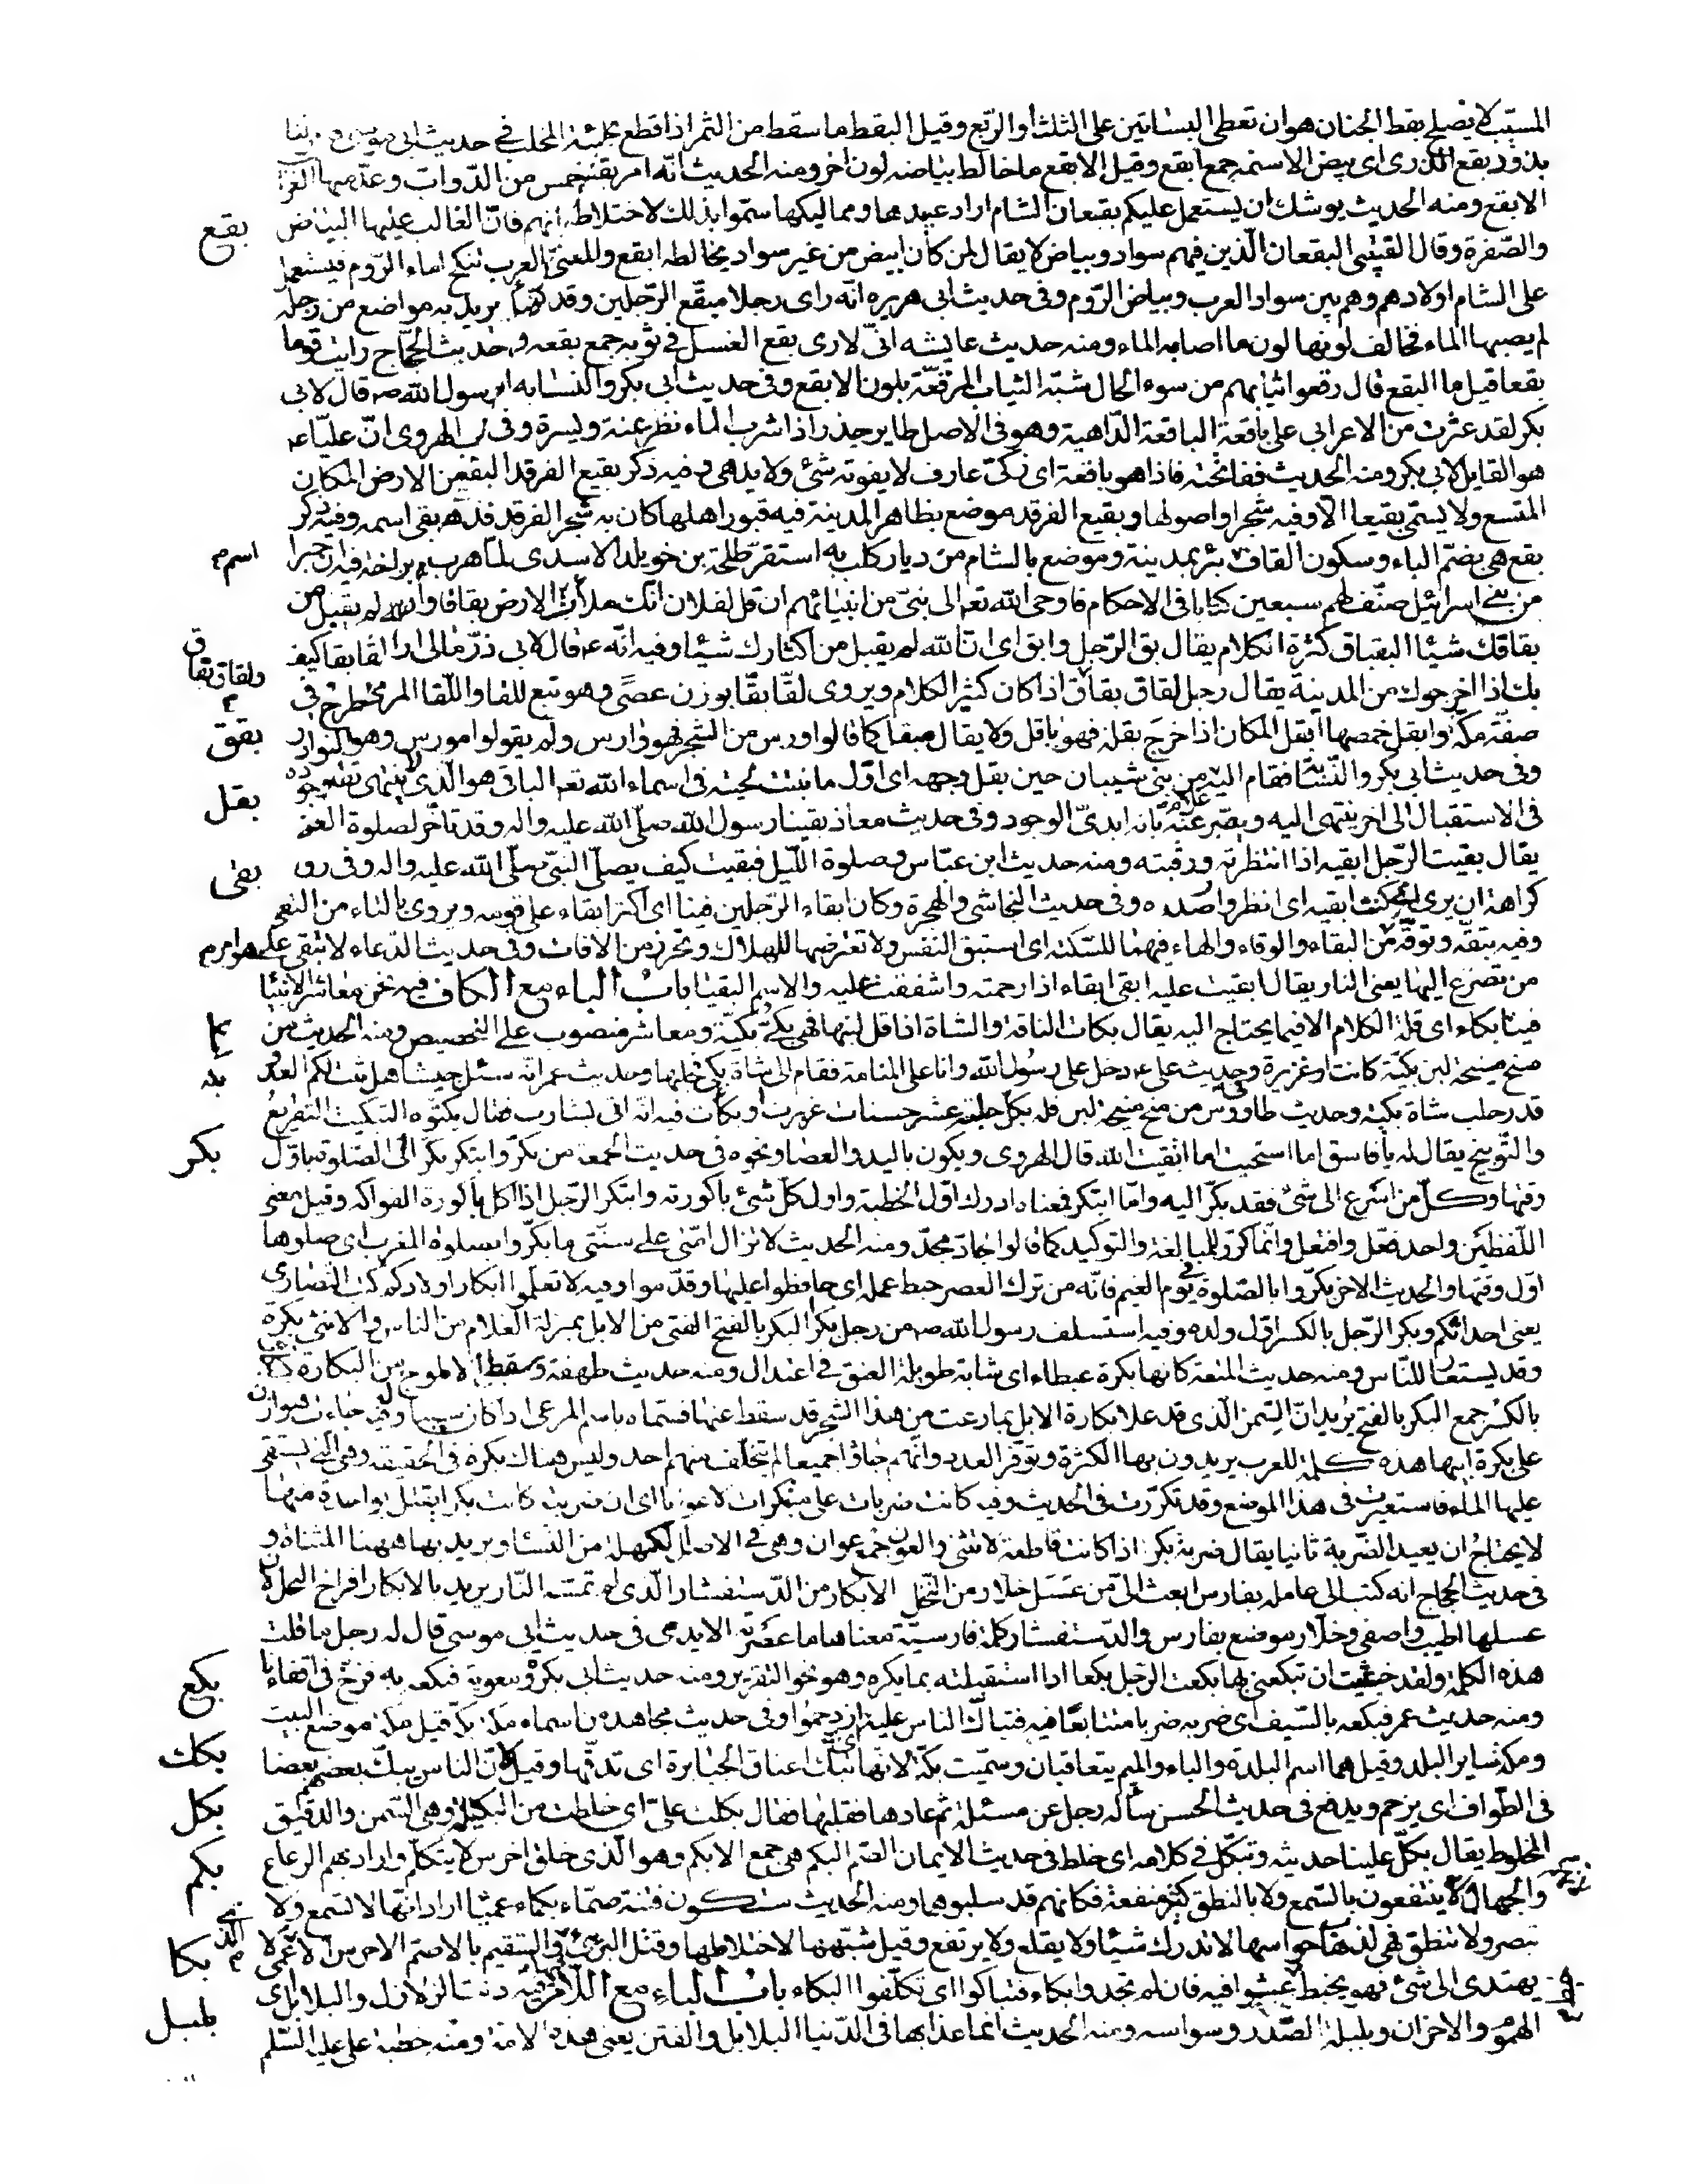 المسيّب لا يصلح بقط الجنان هو ان تعطى البساتين على الثلث او الربّع وقيل البقط ما سقط من الثمر اذا قطع يخطئه المخلب فى حديث ابى موسى
بذود بقع الذرى اى بيض الاسنمه جمع ابقع وقيل الابقع ما خالط بياضه لون اخر ومنه الحديث انّه امر بقتل خمس من الدّواب وعدّ منها الغراب
الابقع ومنه الحديث يوشك ان يستعمل عليكم بقعان الشام اراد عبيدها ومماليكها سمّوا بذلك لاختلاط الوانهم فانّ الغالب عليها البياض
بقع
والصّفرة وقال القتيبى البقعان الّذين فيهم سواد وبياض لا يقال لمن كان ابيض من غير سواد يخالطه ابقع والمعنى العرب تنكح اماء الرّوم فيستعمل
على الشام اولادهم وهم بين سواد العرب وبياض الرّوم وفى حديث ابى هريره انّه راى رجلا مبقّع الرّجلين وقد توضّأ يريد به مواضع من رجله
لم يصبها الماء فخالف لونها لون ما اصابه الماء ومنه حديث عايشه انّى لارى بقع الغسل فى ثوبه جمع بقعه وحديث الحجّاج رايت قوما
بقعا قيل ما البقع قال رقعوا ثيابهم من سوء الحال شبّه الثياب المرقّعة بلون الابقع وفى حديث ابى بكر والنسّابه ان رسول الله صم قال لابى
بكر لقد عثرت من الاعرابى على باقعة الباقعة الدّاهية وهو فى الاصل طاير حذر اذا شرب الماء نظر يمنة ويسرة وفى كتاب الهروى انّ عليّا عم
هو القايل لابى بكر ومنه الحديث ففاتحته فاذا هو باقعة اى زكىّ عارف لا يفوته شئ ولا يدهى وفيه ذكر بقيع الغرقد البقيع من الارض المكان
المتّسع ولا يسمّى بقيعا الّا وفيه شجر او اصولها وبقيع الغرقد موضع بظاهر المدينة فيه قبور اهلها كان به شجر الغرقد فذهب وبقى اسمه وفيه ذكر
بقع هى بضمّ الباء وسكون القاف اسم بئر بمدينة وموضع بالشام من ديار كلب به استقرّ طلحة بن خويلد الاسدى لمّا هرب يوم بزاخه فيه ان حبرا
من بنى اسرائيل صنّف لهم سبعين كتابا فى الاحكام فاوحى الله تعالى الى نبىّ من انبيائهم ان قل لفلان انّك ملأت الارض بقاقا وانّ الله لم يقبل من
بقاقك شيئا البقباق كثرة الكلام يقال بق الرّجل وابق اى انّ الله لم يقبل من اكثارك شيئا وفيه انّه عم قال لابى ذرّ مالى اراك لقا بقا كيف
بك اذا اخرجوك من المدينة يقال رجل لقاق بقاق ولقاق بقاق اذا كان كثير الكلام ويروى لقّا بقّا بوزن عصىً وهو تبع للقا واللّقا المرمىّ المطروح فى
بقق
صفة مكّة وابقل حمضها ابقل المكان اذا خرج بقله فهو باقل ولا يقال مبقل كما قالوا اورس من الشجر فهو وارس ولم يقولوا مورس وهو من النوادر
بقل
وفى حديث ابى بكر والنسّابة فقام اليه غلام من بنى شيبان حين بقل وجهه اى اوّل ما نبتت لحيته فى اسماء الله تعالى الباقى هو الّذى لا ينتهى تقدير وجوده
فى الاستقبال الى اخر ينتهى اليه ويعبّر عنه بأنه ابدىّ الوجود وفى حديث معاذ بقينا رسول الله صلّى الله عليه وآله وقد تأخّر لصلوة العتمة
يقال بقيت الرّجل ابقيه اذا انتظرته ورقبته ومنه حديث ابن عبّاس وصلوة اللّيل فبقيت كيف يصلّى النبّى صلّى الله عليه واله وفى رواية
بقى
كراهة ان يرى انّى كنت ابقيه اى انظره وارصده وفى حديث النجاشى والهجرة وكان ابقاء الرّجلين فينا اى اكثر ابقاء على قومه ويروى بالتاء من التقى
وفيه تبقّه وتوقّه هو امر من البقاء والوقاء والهاء فيهما للسّكت اى استبق النفس ولا تعرّضها للهلاك وتحرّز من الافات وفى حديث الدّعاء لا تبقى على
من تضرع اليها يعنى النار يقال ابقيت عليه ابقى ابقاء اذا رحمته واشفقت عليه والاسم البقيا باب الباء مع الكاف فيه نحن معاشر الانبيا
بكا
فينا بكاء اى قلّة الكلام الا فيما يحتاج اليه يقال بكات الناقة والشاة اذا قل لبنها فهى بكئ وبكيئة ومعاشر منصوب على التخصيص ومنه الحديث من
منح منيحة لبن بكيّة كانت او غزيرة وحديث على عم دخل على رسول الله وانا على المنامة فقام الى شاة بكئ فحلبها وحديث عمر انّه سئل جيشا هل ثبت لكم العدو
قدر حلب شاة بكيئه وحديث طاووس من منح منيحة لبن فله بكل حلبة عشر حسنات غزرت او بكأت فيه انّه اتى بشارب فقال بكّتوه التبكيت التقريع
والتّوبيخ يقال له يا فاسق اما استحييت اما اتّقيت الله قال الهروى ويكون باليد والعصا ونحوه فى حديث الجمعة من بكرّ وابتكر بكرّ اتى الصّلوة باوّل
بكر
وقتها وكلّ من اسرع الى شئ فقد بكرّ اليه وامّا ابتكر فمعناه ادرك اوّل الخطبة واول كلّ شئ باكورته وابتكر الرّجل اذا اكل باكورة الفواكه وقيل معنى
اللّفظين واحد فعّل وافتعل وانّما كرّر للمبالغة والتوكيد كما قالوا جادّ مجدّ ومنه الحديث لا تزال امّتى على سنّتى ما بكرّوا بصلوة المغرب اى صلّوها
اوّل وقتها والحديث الاخر بكرّوا بالصّلوة فى يوم الغيم فانّه من ترك العصر حبط عمله اى حافظوا عليها وقدّموا وفيه لا تعلّموا ابكار اولادكم كتب النّصارى
يعنى احداثكم وبكر الرّجل بالكسر اوّل ولده وفيه استسلف رسول الله صم من رجل بكرا البكر بالفتح الفتى من الابل بمنزلة الغلام من الناس والانثى بكرة
وقد يستعار للنّاس ومنه حديث المتعة كانها بكرة عيطاء اى شابة طويلة العنق فى اعتدال ومنه حديث طهفة وسقط الاملوج من البكارة
بالكسر جمع البكر بالفتح يريد انّ السّمن الّذى قد علا بكارة الابل بما رعت من هذا الشجر قد سقط عنها فسمّاه باسم المرعى اذا كان سببا له وفيه جاءت هوازن
على بكرة ابيها هذه كلمة للعرب يريدون بها الكثرة وتوفّر العدد وانّهم جاؤا جميعا لم يتخلّف منهم احد وليس هناك بكرة فى الحقيقة وهى التى يستقى
عليها الماء فاستعيرت فى هذا الموضع وقد تكرّرت فى الحديث وفيه كانت ضربات على مبتكرات لا عونا اى ان ضربته كانت بكرا يقتل بواحدة منها
لا يحتاج ان يعيد الضّربة ثانيا يقال ضربة بكر اذا كانت قاطعة لا تثنى والعون جمع عوان وهى فى الاصل الكهلة من النساء ويريد بها ههنا المثناة و
فى حديث الحجاج انه كتب الى عامله بفارس ابعث الىّ من عسل خلاّر من النّحل الابكار من الدّستفشار الّذى لم تمسّه النّار يريد بالابكار افراخ النحل لانّ
عسلها اطيب واصفى وخلاّر موضع بفارس والدّستفشار كلمة فارسيّة معناها ما عصرته الايدى فى حديث ابى موسى قال له رجل ما قلت
هذه الكلمة ولقد خشيت ان تبكعنى بها بكعت الرّجل بكعا اذا استقبلته بما يكره وهو نحو التقريع ومنه حديث ابى بكرة ومعوية فبكعه به فزخّ فى اقفائنا
بكع
ومنه حديث عمر فبكعه بالسّيف اى ضربه ضربا متتابعًا فيه فتباكّ الناس عليه اى ازدحموا وفى حديث مجاهد من اسماء مكة بكة قيل بكة موضع البيت
بكك
ومكة ساير البلد وقيل هما اسم البلدة والباء والميم يتعاقبان وسمّيت بكّة لانّها تبكّ اعناق الجبابرة اى تدقّها وقيل لانّ الناس يبكّ بعضهم بعضا
فى الطّواف اى يزحم ويدفع فى حديث الحسن سأله رجل عن مسئلة ثم عادها فقلبها فقال بكلت علىّ اى خلطت من البكيلة وهى السّمن والدقيق
بكل
المخلوط يقال بكل علينا حديثه وتبكّل فى كلامه اى خلط فى حديث الايمان الصّم البكم هى جمع الابكم وهو الّذى خلق اخرس لا يتكلّم وارادبهم الرعاع
بكم
والجهال لانّهم لا ينتفعون بالسّمع ولا بالنطق كثير منفعة فكانهم قد سلبوهما ومنه الحديث ستكون فتنة صمّاء بكماء عميا اراد انّها لا تسمع ولا
تبصر ولا تنطق فهى لذهاب حواسها لا تدرك شيئا ولا يقلع ولا يرتفع وقيل شبّهها لاختلاطها وقتل البرئ فيها والسّقيم بالاصمّ الاخرس الاعمى الّذى لا
بكا
يهتدى الى شئ فهو يخبط عشوا فيه فان لم تجدوا بكاء فتباكوا اى تكلّفوا البكاء باب الباء مع اللّام فيه دنت الزلازل والبلابل اى
بلبل
الهموم والاحزان وبلبلة الصّدر وسواسه ومنه الحديث انما عذابها فى الدّنيا البلابل والفتن يعنى هذه الامّة ومنه خطبة على عليه السّلم